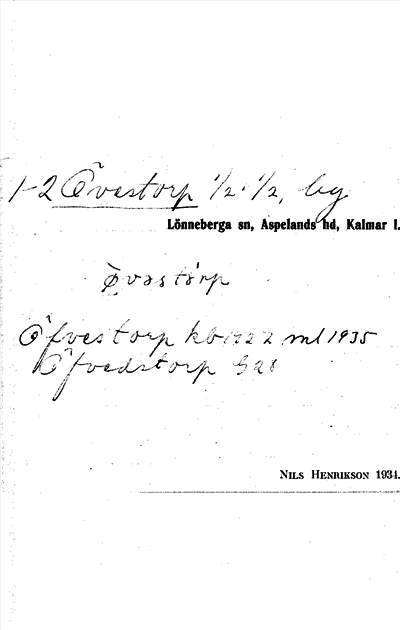 1-2 Övestorp 1/2. 1/2, by
Lönneberga sn, Aspelands hd, Kalmar l.
Öfvestorp kb 1922 ml 1935
Öfvedstorp
NILS HENRIKSON 1934.